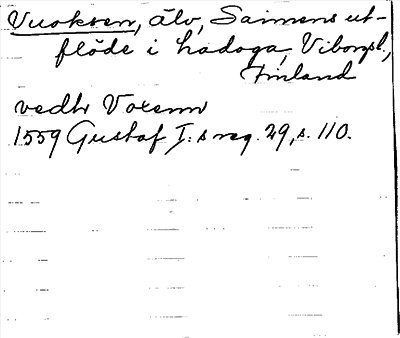 Vuoksen, älv, Saimens ut-
flöde i Ladoga, Viborgsl.,
Finland
vedh Voxenn
1559 Gustaf I:s reg. 29, s. 110.